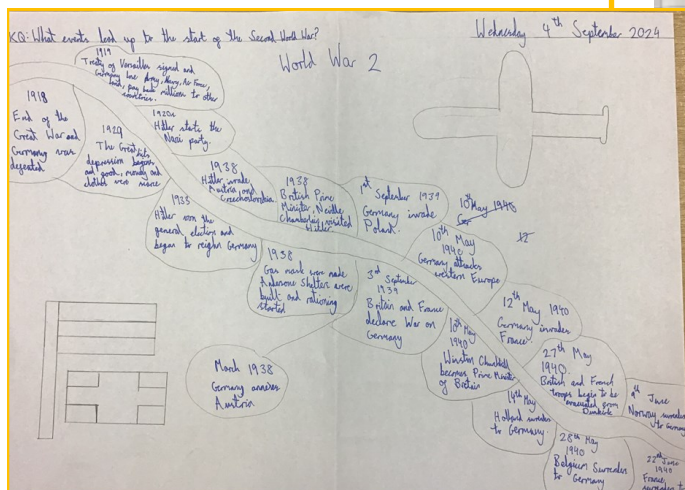 KQ: What events lead up to the start of the Second World War?
Wednesday 4th September 2024
World War 2
1919
Treaty of Versailles signed and
Germany lose Army, Navy, Air Force,
land, pay back millions to other
countries.
1918
End of the
Great War and
Germany was
defeated
1920s
Hitler starts the
Nazi party.
1929
The Great
depression begins
and food, money and
clothes were
1933
Hitler won the
general election and
began to reighn Germany
1938
Hitler invade
Austria and
Czechoslovakia
1938
British Prime
Minister, Neville
Chamberlain, visited
Hitler
1938
Gas mask were made
Anderson Shelter were
built and rationing
started
1st September 1939
Germany invade
Poland.
3rd September
1939
Britain and France
declare War on
Germany
10th May 1940
10th May
1940
Germany attacks
western Europe
10th May
1940
Winston Churchill
becomes Prime Minister
of Britain
12th May 1940
Germany invades
France
14th May
Holland surrender
to Germany
27th May
1940
British and French
troops begin to be
evacuated from
Dunkirk
28th May
1940
Belgium Surrender
to Germany
9th June
Norway surrender
to Germany
22nd June
1940
France
surrender to
March 1938
Germany annexes
Austria